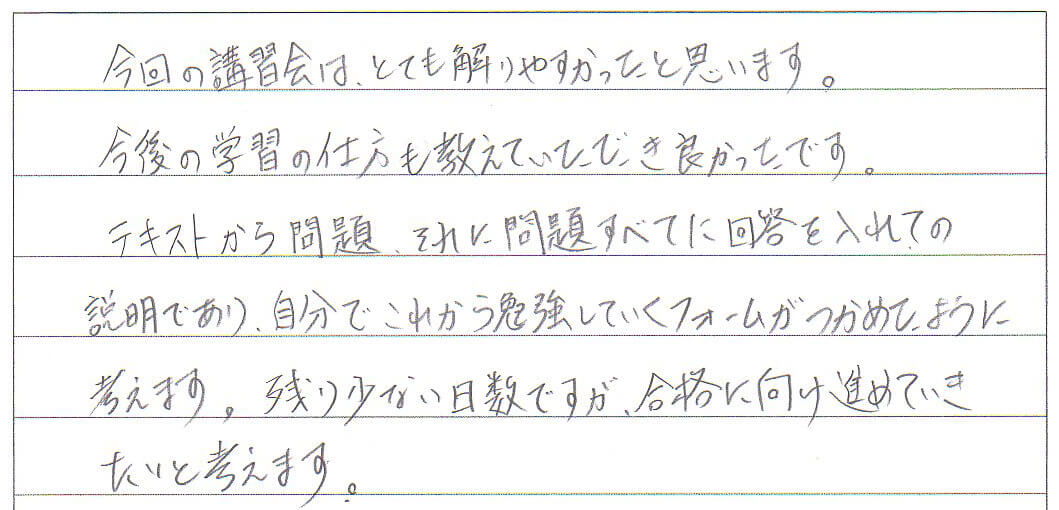 今回の講習会は、とても解りやすかったと思います。
今後の学習の仕方も教えていただき良かったです。
テキストから問題、それに問題すべてに回答を入れての
説明であり、自分でこれから勉強していくフォームがつかめたように
考えます。残り少ない日数ですが、合格に向け進めていき
たいと考えます。